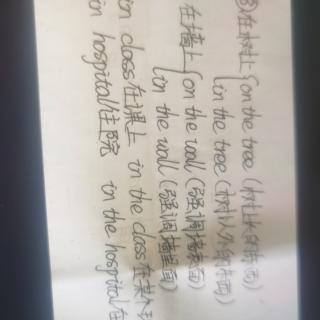 ③在树上{on the tree (树上长的东西)
in the tree (树以外的东西)
在墙上{on the wall (强调墙表面)
in the wall (强调墙里面)
in class在课上 in the class在某个班
in hospital住院 in the hospital在